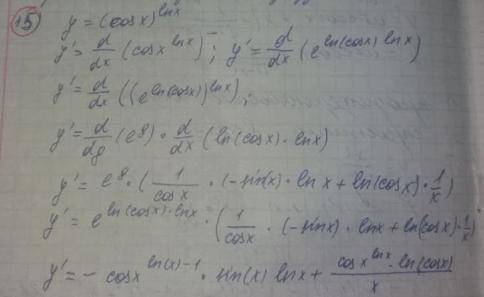 15) y = (cosx)^lnx
y' = d/dx (cosx^lnx); y' = d/dx (e^ln(cosx) lnx)
y' = d/dx ((e^ln(cosx))^lnx)
y' = d/dg (e^g) · d/dx (ln(cosx) · lnx)
y' = e^g · (1/cosx · (-sin(x) · lnx + ln(cosx) · 1/x)
y' = e^ln(cosx)·lnx · (1/cosx · (-sinx) · lnx + ln(cosx) · 1/x)
y' = - cosx^ln(x)-1 · sin(x) lnx + cosx^lnx · ln(cosx)/x